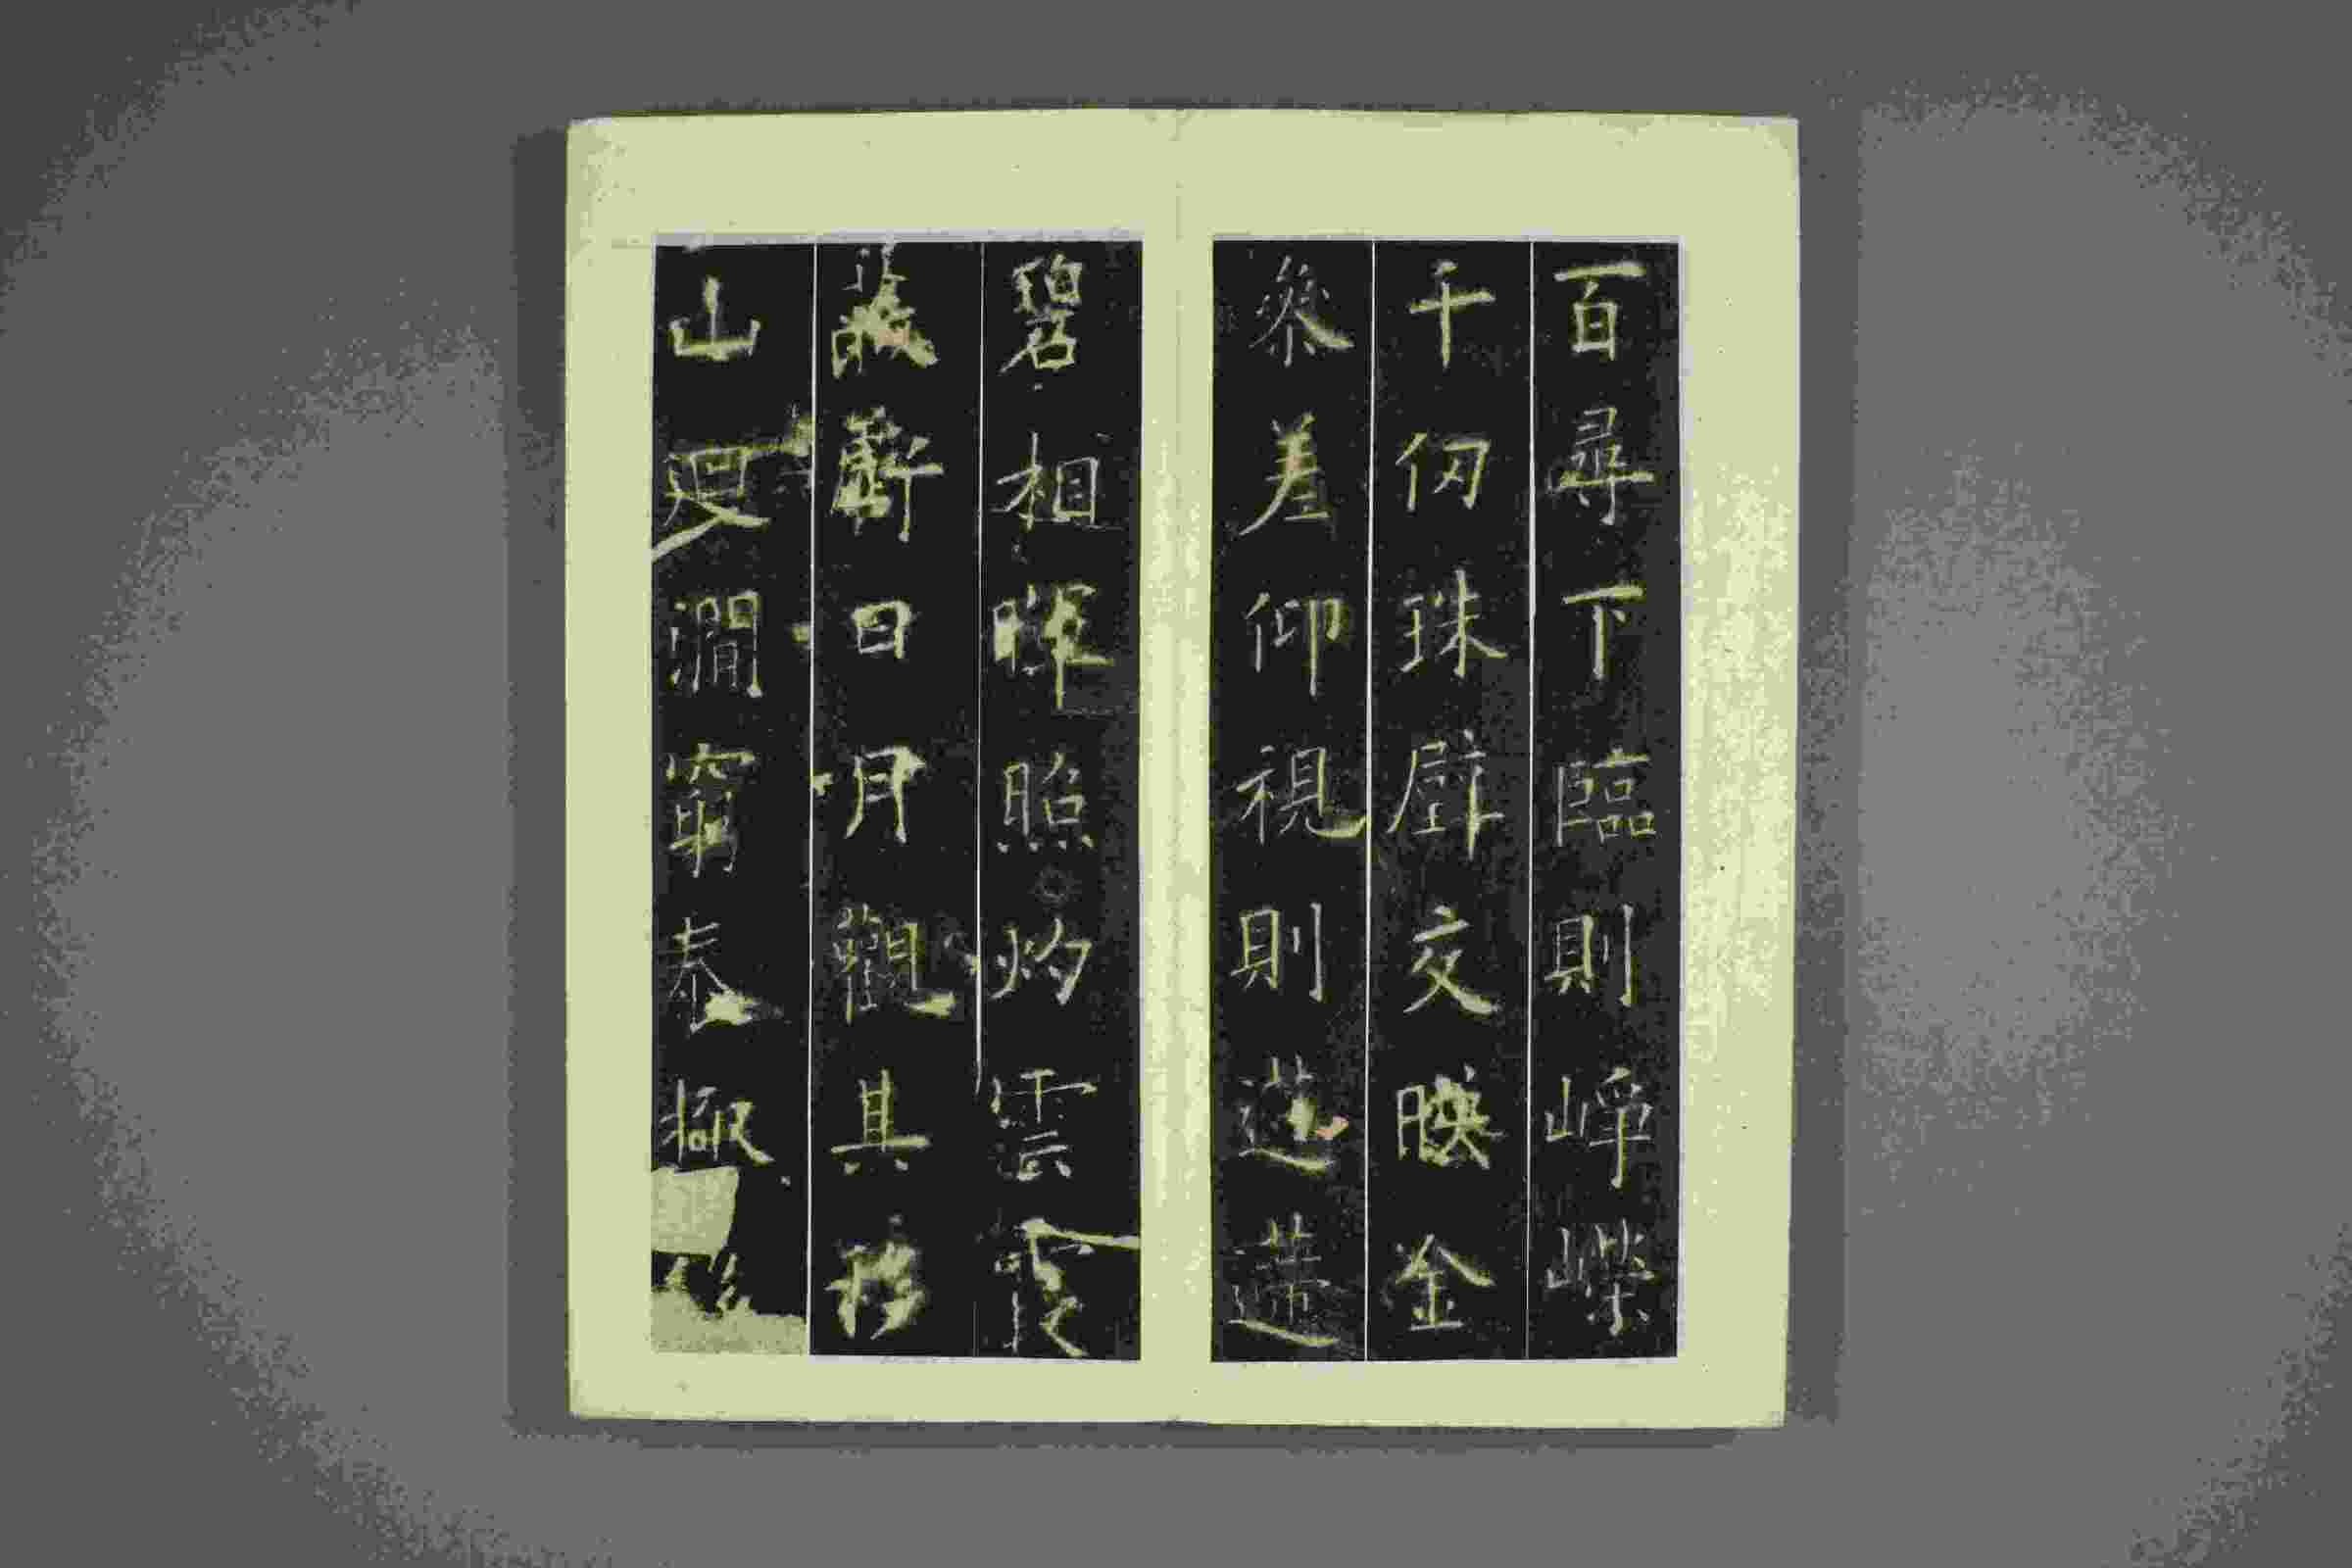 百尋下臨則崢嶸
千仞珠璧交映金
叅差仰視則迢遰
碧相暉照灼雲霞
蔽虧日月觀其移
山迴澗窮泰極侈